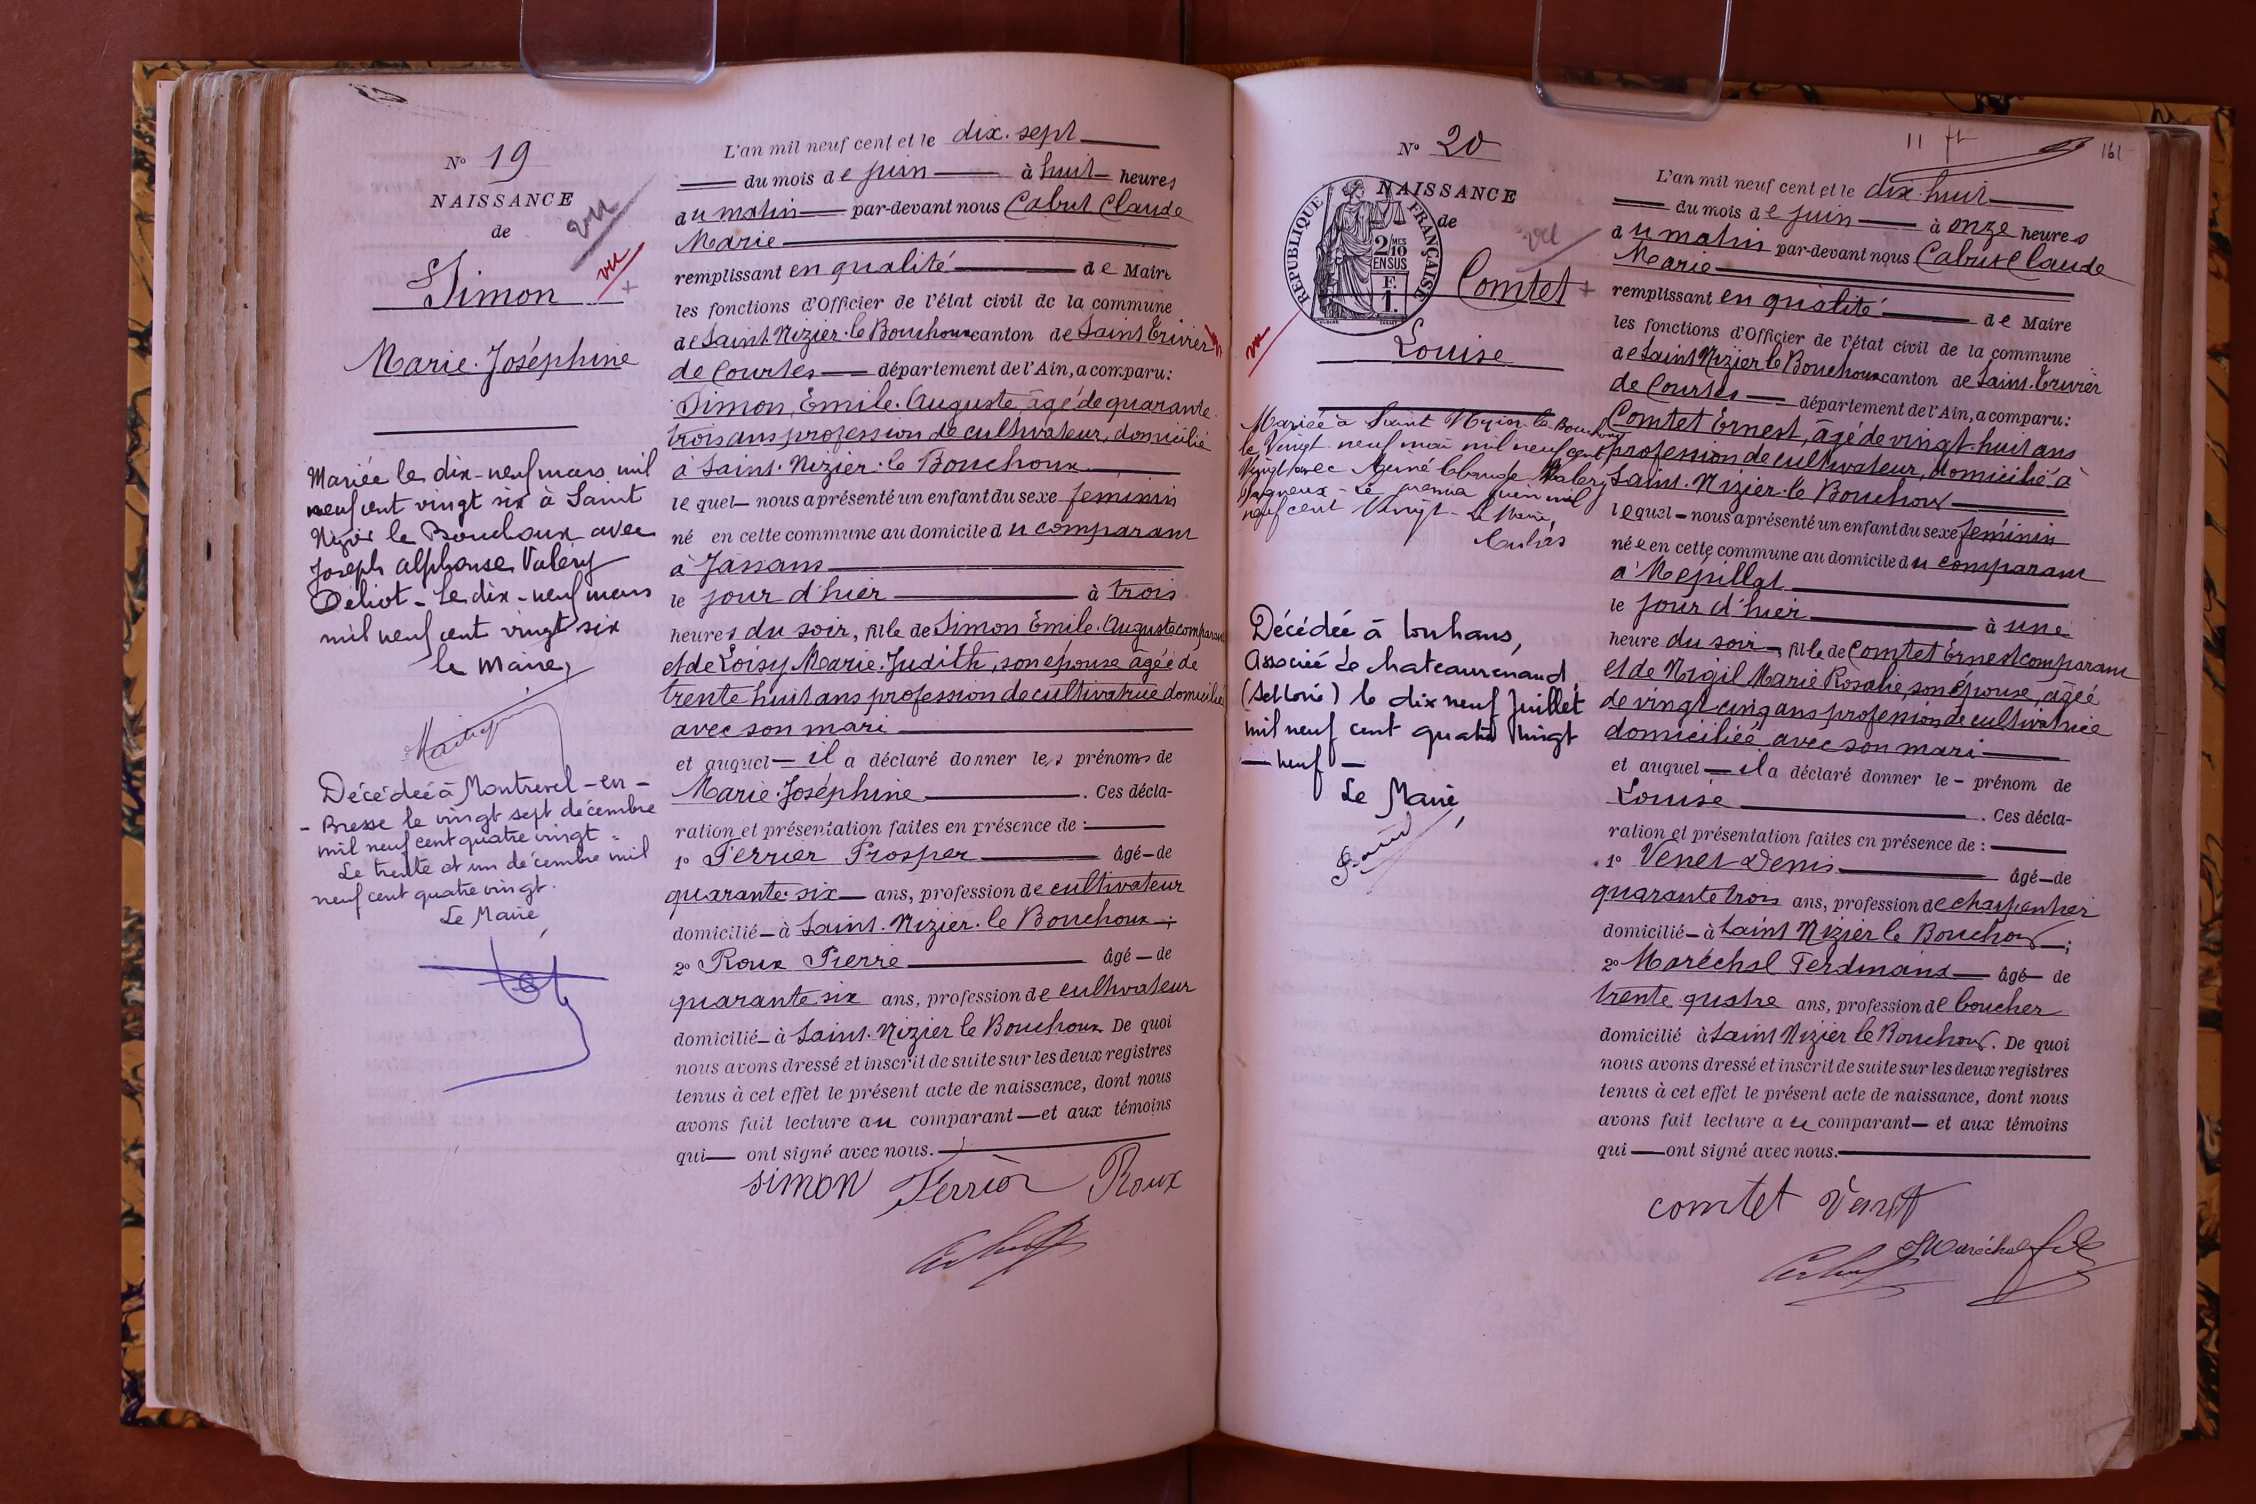 Nº 19
NAISSANCE
de
vu
vu
Simon
Marie. Joséphine
Mariée le dix-neuf mars mil
neuf cent vingt six à Saint
Nizier le Bouchoux avec
Joseph Alphonse Valéry
Le dix-neuf mars
mil neuf cent vingt six
le Maire,
Décédée à Montrevel-en-
-Bresse le vingt sept décembre
mil neuf cent quatre vingt =
Le trente et un décembre mil
neuf cent quatre vingt.
Le Maire,
L'an mil neuf cent et le dix. sept
du mois de juin à huit heures
du matin par-devant nous Cabut Claude
Marie
remplissant en qualité de Maire
les fonctions d'Officier de l'état civil de la commune
de Saint. Nizier. le Bouchoux canton de Saint Trivier
de Courtes département de l'Ain, a comparu:
Simon, Emile. Auguste, âgé de quarante.
trois ans profession de cultivateur, domicilié
à Saint. Nizier. le Bouchoux
lequel nous a présenté un enfant du sexe féminin
né en cette commune au domicile du comparant
à Jassans
le jour d'hier à trois
heures du soir, fille de Simon Emile. Auguste comparant
et de Loisy Marie. Judith, son épouse âgée de
trente huit ans profession de cultivatrice domiciliée
avec son mari
et auquel il a déclaré donner les prénoms de
Marie. Joséphine. Ces décla-
ration et présentation faites en présence de :
1º Ferrier Prosper âgé de
quarante. six ans, profession de cultivateur
domicilié à Saint. Nizier. le Bouchoux ;
2º Roux Pierre âgé de
quarante six ans, profession de cultivateur
domicilié à Saint. Nizier le Bouchoux De quoi
nous avons dressé et inscrit de suite sur les deux registres
tenus à cet effet le présent acte de naissance, dont nous
avons fait lecture au comparant et aux témoins
qui ont signé avec nous.
simon Ferrier Roux
Cabut
Nº 20
NAISSANCE
de
RÉPUBLIQUE FRANÇAISE
2 MES
10
EN SUS
F.
1.
vu
vu
Comtet
Louise
Mariée à Saint Nizier-le-Bouchoux
le Vingt-neuf mai mil neuf cent
Vingt avec Claude Valery
Le premier juin mil
neuf cent Vingt - Le Maire,
Décédée à Louhans,
Associée de Chateaurenaud
(Set Loire) le dix neuf Juillet
mil neuf cent quatre vingt
- neuf -
Le Maire,
161
L'an mil neuf cent et le dix. huit
du mois de juin à onze heures
du matin par-devant nous Cabut Claude
Marie
remplissant en qualité de Maire
les fonctions d'Officier de l'état civil de la commune
de Saint Nizier le Bouchoux canton de Saint. Trivier
de Courtes département de l'Ain, a comparu:
Comtet Ernest, âgé de vingt. huit ans
profession de cultivateur, domicilié à
Saint. Nizier. le Bouchoux
lequel nous a présenté un enfant du sexe féminin
née en cette commune au domicile du comparant
à Mépillat
le jour d'hier à une
heure du soir, fille de Comtet Ernest comparant
et de Nigil Marie Rosalie, son épouse, âgée
de vingt cinq ans profession de cultivatrice
domiciliée avec son mari
et auquel il a déclaré donner le prénom de
Louise. Ces décla-
ration et présentation faites en présence de :
1º Venet Denis âgé de
quarante trois ans, profession de charpentier
domicilié à Saint Nizier le Bouchoux ;
2º Maréchal Ferdinand âgé de
trente quatre ans, profession de boucher
domicilié à Saint Nizier le Bouchoux. De quoi
nous avons dressé et inscrit de suite sur les deux registres
tenus à cet effet le présent acte de naissance, dont nous
avons fait lecture au comparant et aux témoins
qui ont signé avec nous.
comtet Venet
Maréchal
Cabut